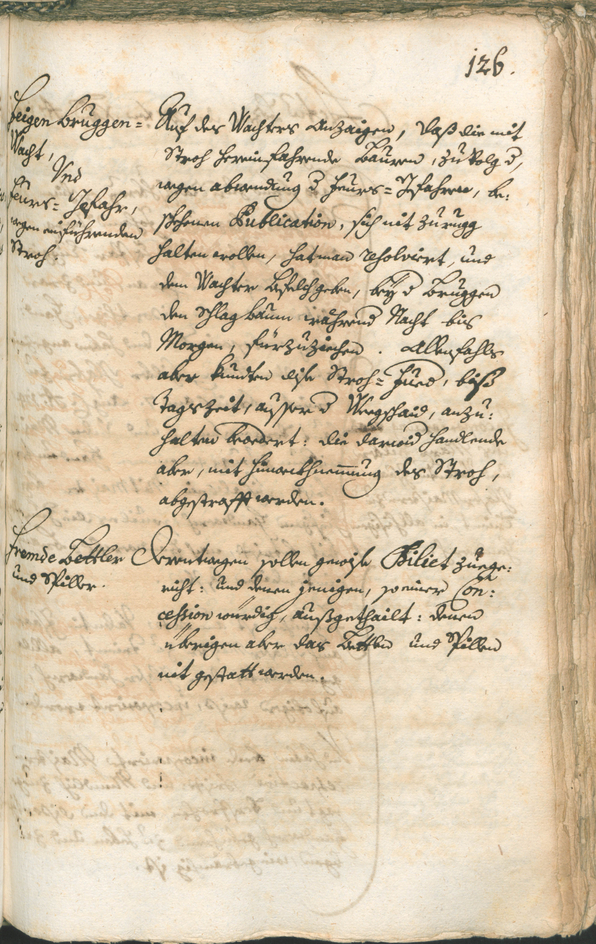 126.
Steigen Bruggen=
Wacht,
Und
Feürs=Gefahr,
wegen einführenden
Stroh.
Auf des Wachters Anzaigen, daß die mit
Stroh hereinfahrende Bauren, zu volg d,
wegen abwendung d Feürs=Gefahren, be:
schehenen Publication, sich nit zurugg
halten wollen, hat man resolviert, und
dem Wachter befelch geben, bey d Bruggen
den Schlagbaum während Nacht bis
Morgen, fürzuziehen. Allenfahls
aber kundten dise Stroh=Fued, biß
Tags Zeit, ausser d, anzu:
halten: die darwid handlende
aber, mit hinwekhnemmung des Stroh,
abgestrafft werden.
Fremde Bettler
und Spiller.
Derentwegen sollen gewise Biliet zuege:
richt: und denen jenigen, so einer Con:
cession würdig, außgethailt: denen
übrigen aber das Bettlen und Spillen
nit gestatt werden.